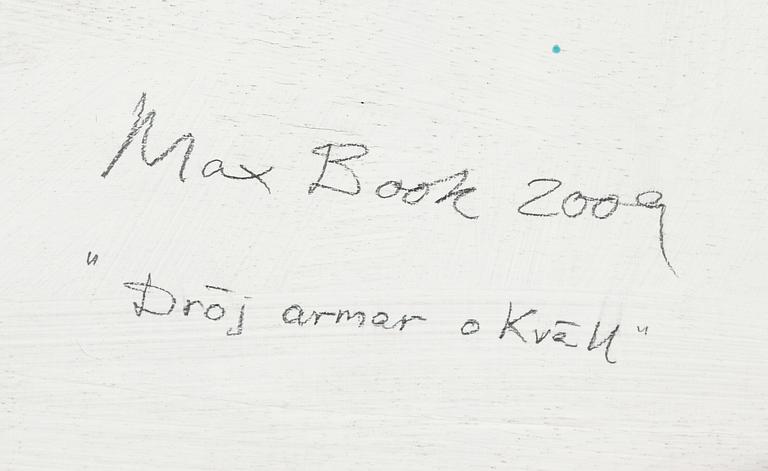 Max Book 2009
"Dröj armar o Kväll"